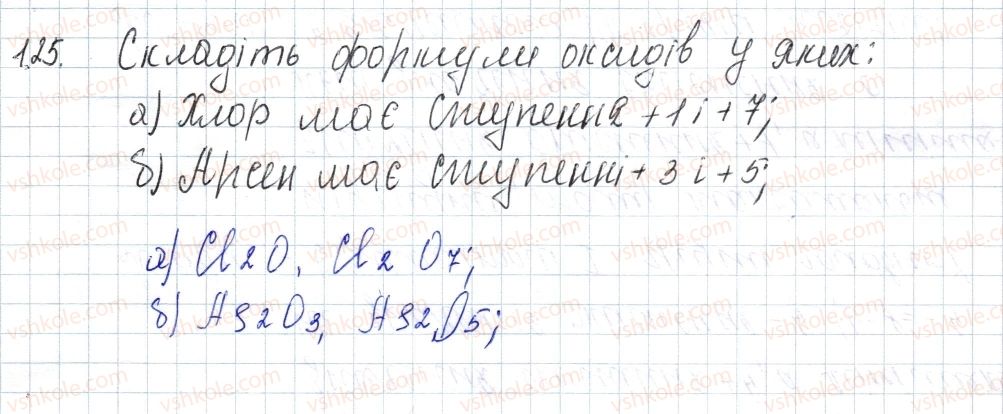 125. Складіть формули оксидів у яких:
а) Хлор має ступення +1 і +7;
б) Арсен має ступенні +3 і +5;
а) Cl2O, Cl2O7;
б) As2O3, As2O5;